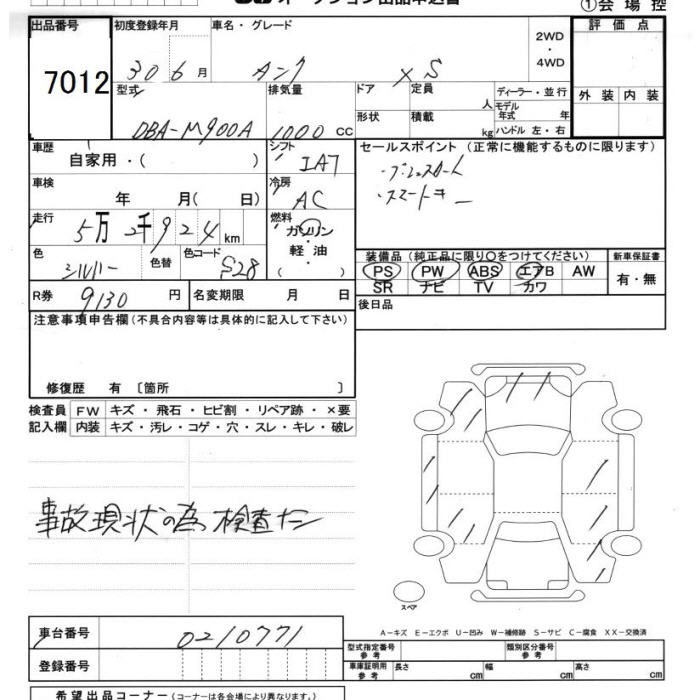 オークション出品申込書
①会場控
出品番号 7012
初度登録年月 30 6 月
車名・グレード タンク XS
2WD ・ 4WD
評価点
外装 内装
型式 DBA-M900A
排気量 1000 CC
ドア 形状
定員 人
積載 kg
ディーラー・並行
モデル年式 年
ハンドル 左・右
車歴 自家用・( )
シフト IA7
セールスポイント (正常に機能するものに限ります)
・プッシュスタート
・スマートキー
車検 年 月( 日)
冷房 AC
走行 5万2千924km
燃料 ガソリン ・ 軽油 ( )
色 シルバー
色替
色コード S28
装備品 (純正品に限り○をつけてください)
PS PW ABS エアB AW
SR ナビ TV カワ
新車保証書
有・無
R券 9130 円
名変期限 月 日
後日品
注意事項申告欄 (不具合内容等は具体的に記入して下さい)
修復歴 有 〔箇所 〕
検査員記入欄
FW キズ ・ 飛石 ・ ヒビ割 ・ リペア跡 ・ ×要
内装 キズ ・ 汚レ ・ コゲ ・ 穴 ・ スレ ・ キレ ・ 破レ
事故現状の為 検査ナシ
スペア
A-キズ E-エクボ U-凹み W-補修跡 S-サビ C-腐食 XX-交換済
車台番号 0210771
登録番号
型式指定番号 参考
類別区分番号 参考
車庫証明用 参考 長さ cm 幅 cm 高さ cm
希望出品コーナー (コーナーは各会場により異なります。)